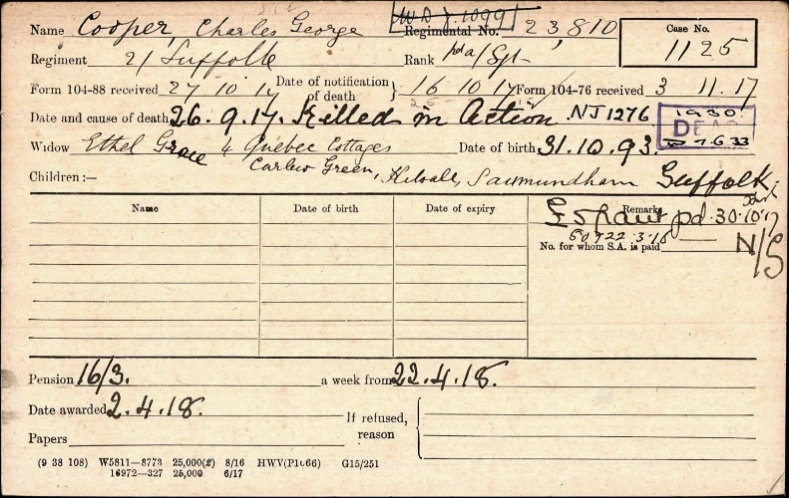 W.D.J. 1099
Name Cooper, Charles George Regimental No. 23,810 Case No. 1125
Regiment 2/ Suffolk Rank pd a/Sgt
Form 104-88 received 27 10 17 Date of notification of death } 16 10 17 Form 104-76 received 3 11.17
Date and cause of death 26.9.17. Killed in Action NJ1276 DEAD 7.6.33
Widow Ethel Grace 4 Quebec Cottages Date of birth 31.10.93.
Children :— Green, Kelsall, Saxmundham Suffolk.
Name Date of birth Date of expiry Remarks
£5 grant pd. 30.10.17
No. for whom S.A. is paid N/S
Pension 16/3. a week from 22.4.18.
Date awarded 2.4.18. If refused, reason
Papers
(9 38 108) W5811—8773 25,000(2) 8/16 HWV(P1666) G15/251
16972—327 25,000 6/17